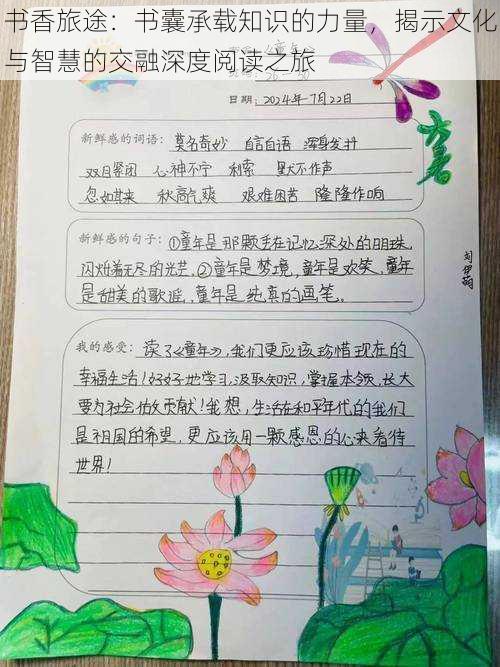 书香旅途：书囊承载知识的力量，揭示文化
与智慧的交融深度阅读之旅
26-50
日期：2024年7月22日
大暑
新鲜感的词语：莫名奇妙 自言自语 浑身发抖
双目紧闭 心神不宁 利索 默不作声
忽如其来 秋高气爽 艰难困苦 隆隆作响
刘伊萌
新鲜感的句子：①童年是那颗丢在记忆深处的明珠，
闪烁着无尽的光芒。②童年是梦境，童年是欢笑，童年
是甜美的歌谣，童年是纯真的画笔。
我的感受：读了《童年》，我们更应该珍惜现在的
幸福生活！好好地学习，汲取知识，掌握本领，长大
要为社会做贡献！我想，生活在和平年代的我们
是祖国的希望，更应该用一颗感恩的心来看待
世界！